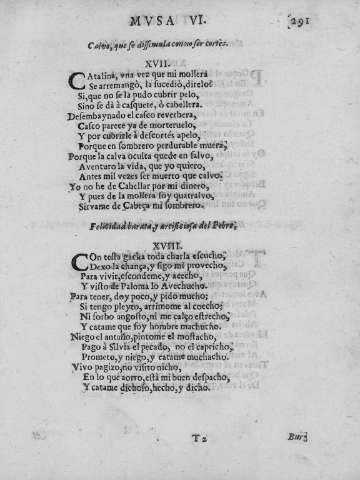 MVSA VI. 291
Calvo, que se dissimula con no ser cortès.
XVII.
CAtalina, vna vez que mi mollera
Se arremangò, la sucediò, direlo?
Si, que no se la pudo cubrir pelo,
Sino se dà à casquete, ò cabellera.
Desembaynado el casco reverbera,
Casco parece yà de morteruelo,
Y por cubrirle à descortès apelo,
Porque en sombrero perdurable muera;
Porque la calva oculta quede en salvo,
Aventuro la vida, que yo quiero,
Antes mil vezes ser muerto que calvo.
Yo no he de Cabellar por mi dinero,
Y pues de la mollera soy quatralvo,
Sirvame de Cabeça mi sombrero.
Felicidad barata, y artificiosa del Pobre.
XVIII.
COn testa gacha toda charla escucho,
Dexo la chança, y sigo mi provecho,
Para vivir, escondeme, y acecho,
Y visto de Paloma lo Avechucho.
Para tener, doy poco, y pido mucho;
Si tengo pleyto, arrimome al coecho;
Ni sorbo angosto, ni me calço estrecho,
Y catame que soy hombre machucho.
Niego el antaño, pintome el mostacho,
Pago à Silvia el pecado, no el capricho;
Prometo, y niego, y catame muchacho.
Vivo pagizo, no visito nicho,
En lo que aorro, està mi buen despacho,
Y catame dichoso, hecho, y dicho.
T2 Bur-